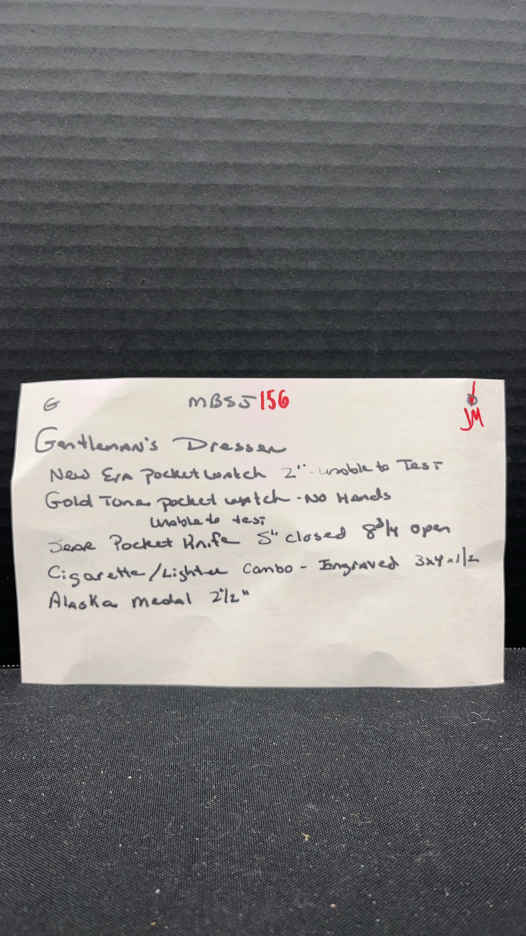 G MBSJ156
JM
Gentleman's Dresser
New Era Pocket watch 2" - unable to Test
Gold Tone pocket watch - No Hands
unable to test
Pocket Knife 5" closed 8 3/4 open
Cigarette/Lighter Combo - Engraved 3x4x1/2
Alaska medal 2 1/2"